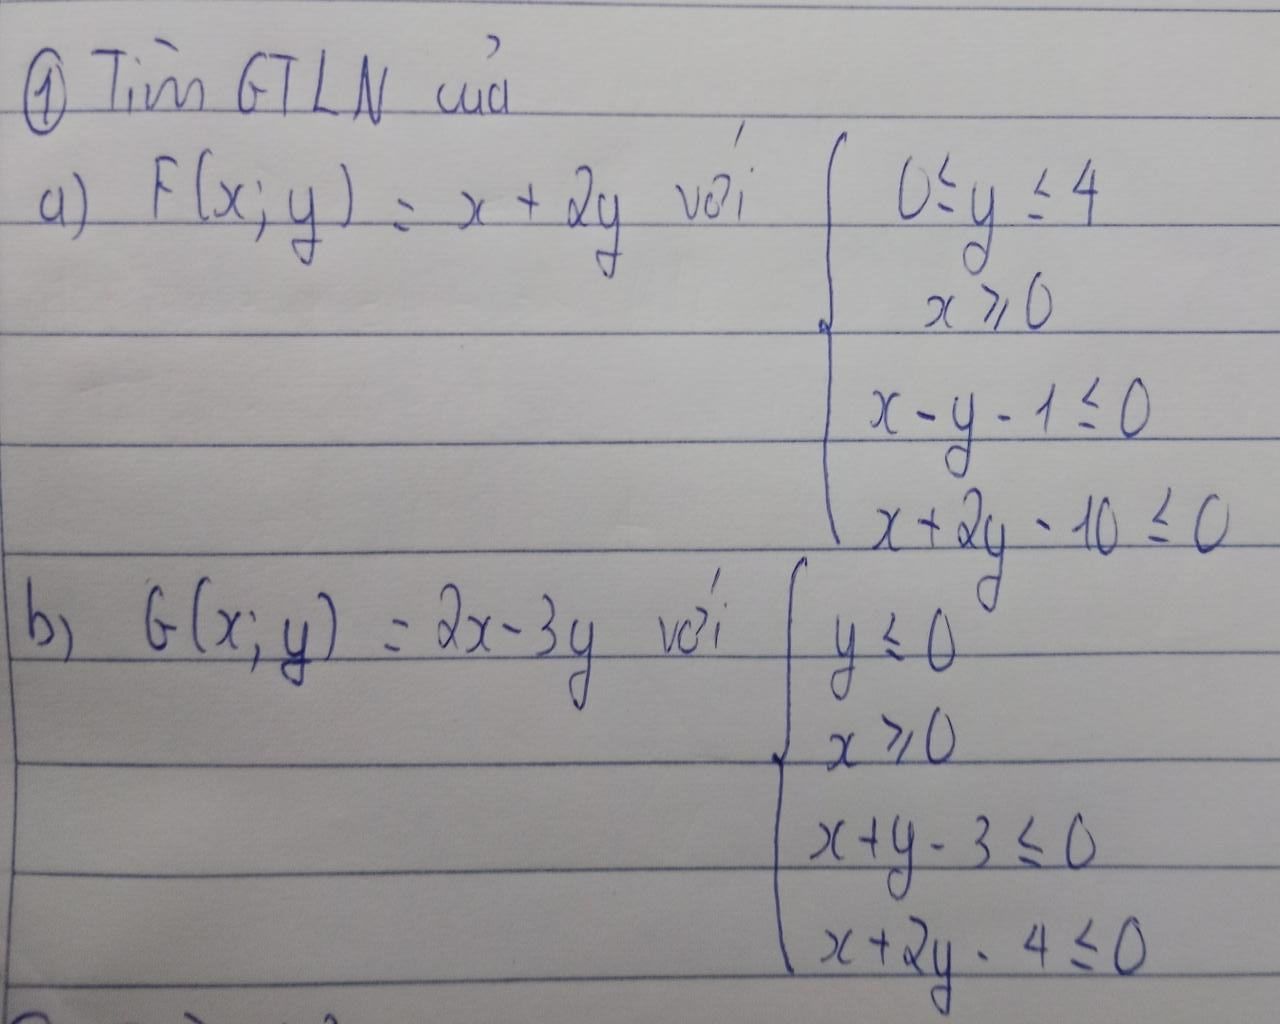 ① Tìm GTLN của
a) F(x; y) = x + 2y với { 0 ≤ y ≤ 4
x ≥ 0
x - y - 1 ≤ 0
x + 2y - 10 ≤ 0
b) G(x; y) = 2x - 3y với { y ≤ 0
x ≥ 0
x + y - 3 ≤ 0
x + 2y - 4 ≤ 0